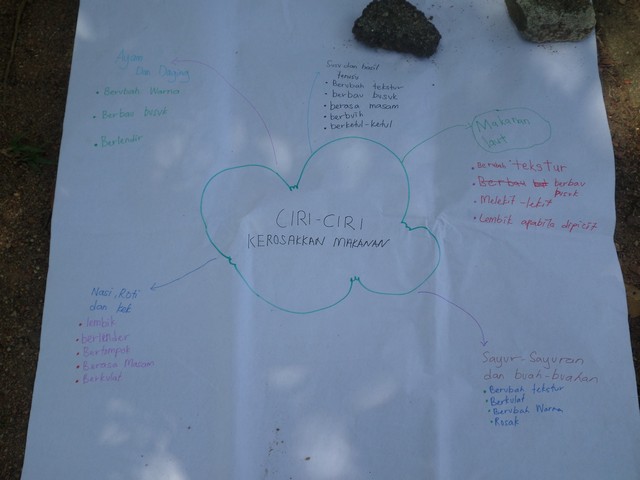 Ayam
Dan Daging
• Berubah Warna
• Berbau busuk
• Berlendir
Susu dan hasil
tenusu
• Berubah tekstur
• berbau busuk
• berasa masam
• berbuih
• berketul-ketul
Makanan
laut
• Berubah tekstur
• Berbau berbau
busuk
• Melekit-lekit
• Lembik apabila dipicit
CIRI-CIRI
KEROSAKKAN MAKANAN
Nasi, Roti
dan kek
• lembik
• berlendir
• Bertompok
• Berasa Masam
• Berkulat
Sayur-Sayuran
dan buah-buahan
• Berubah tekstur
• Berkulat
• Berubah Warna
• Rosak